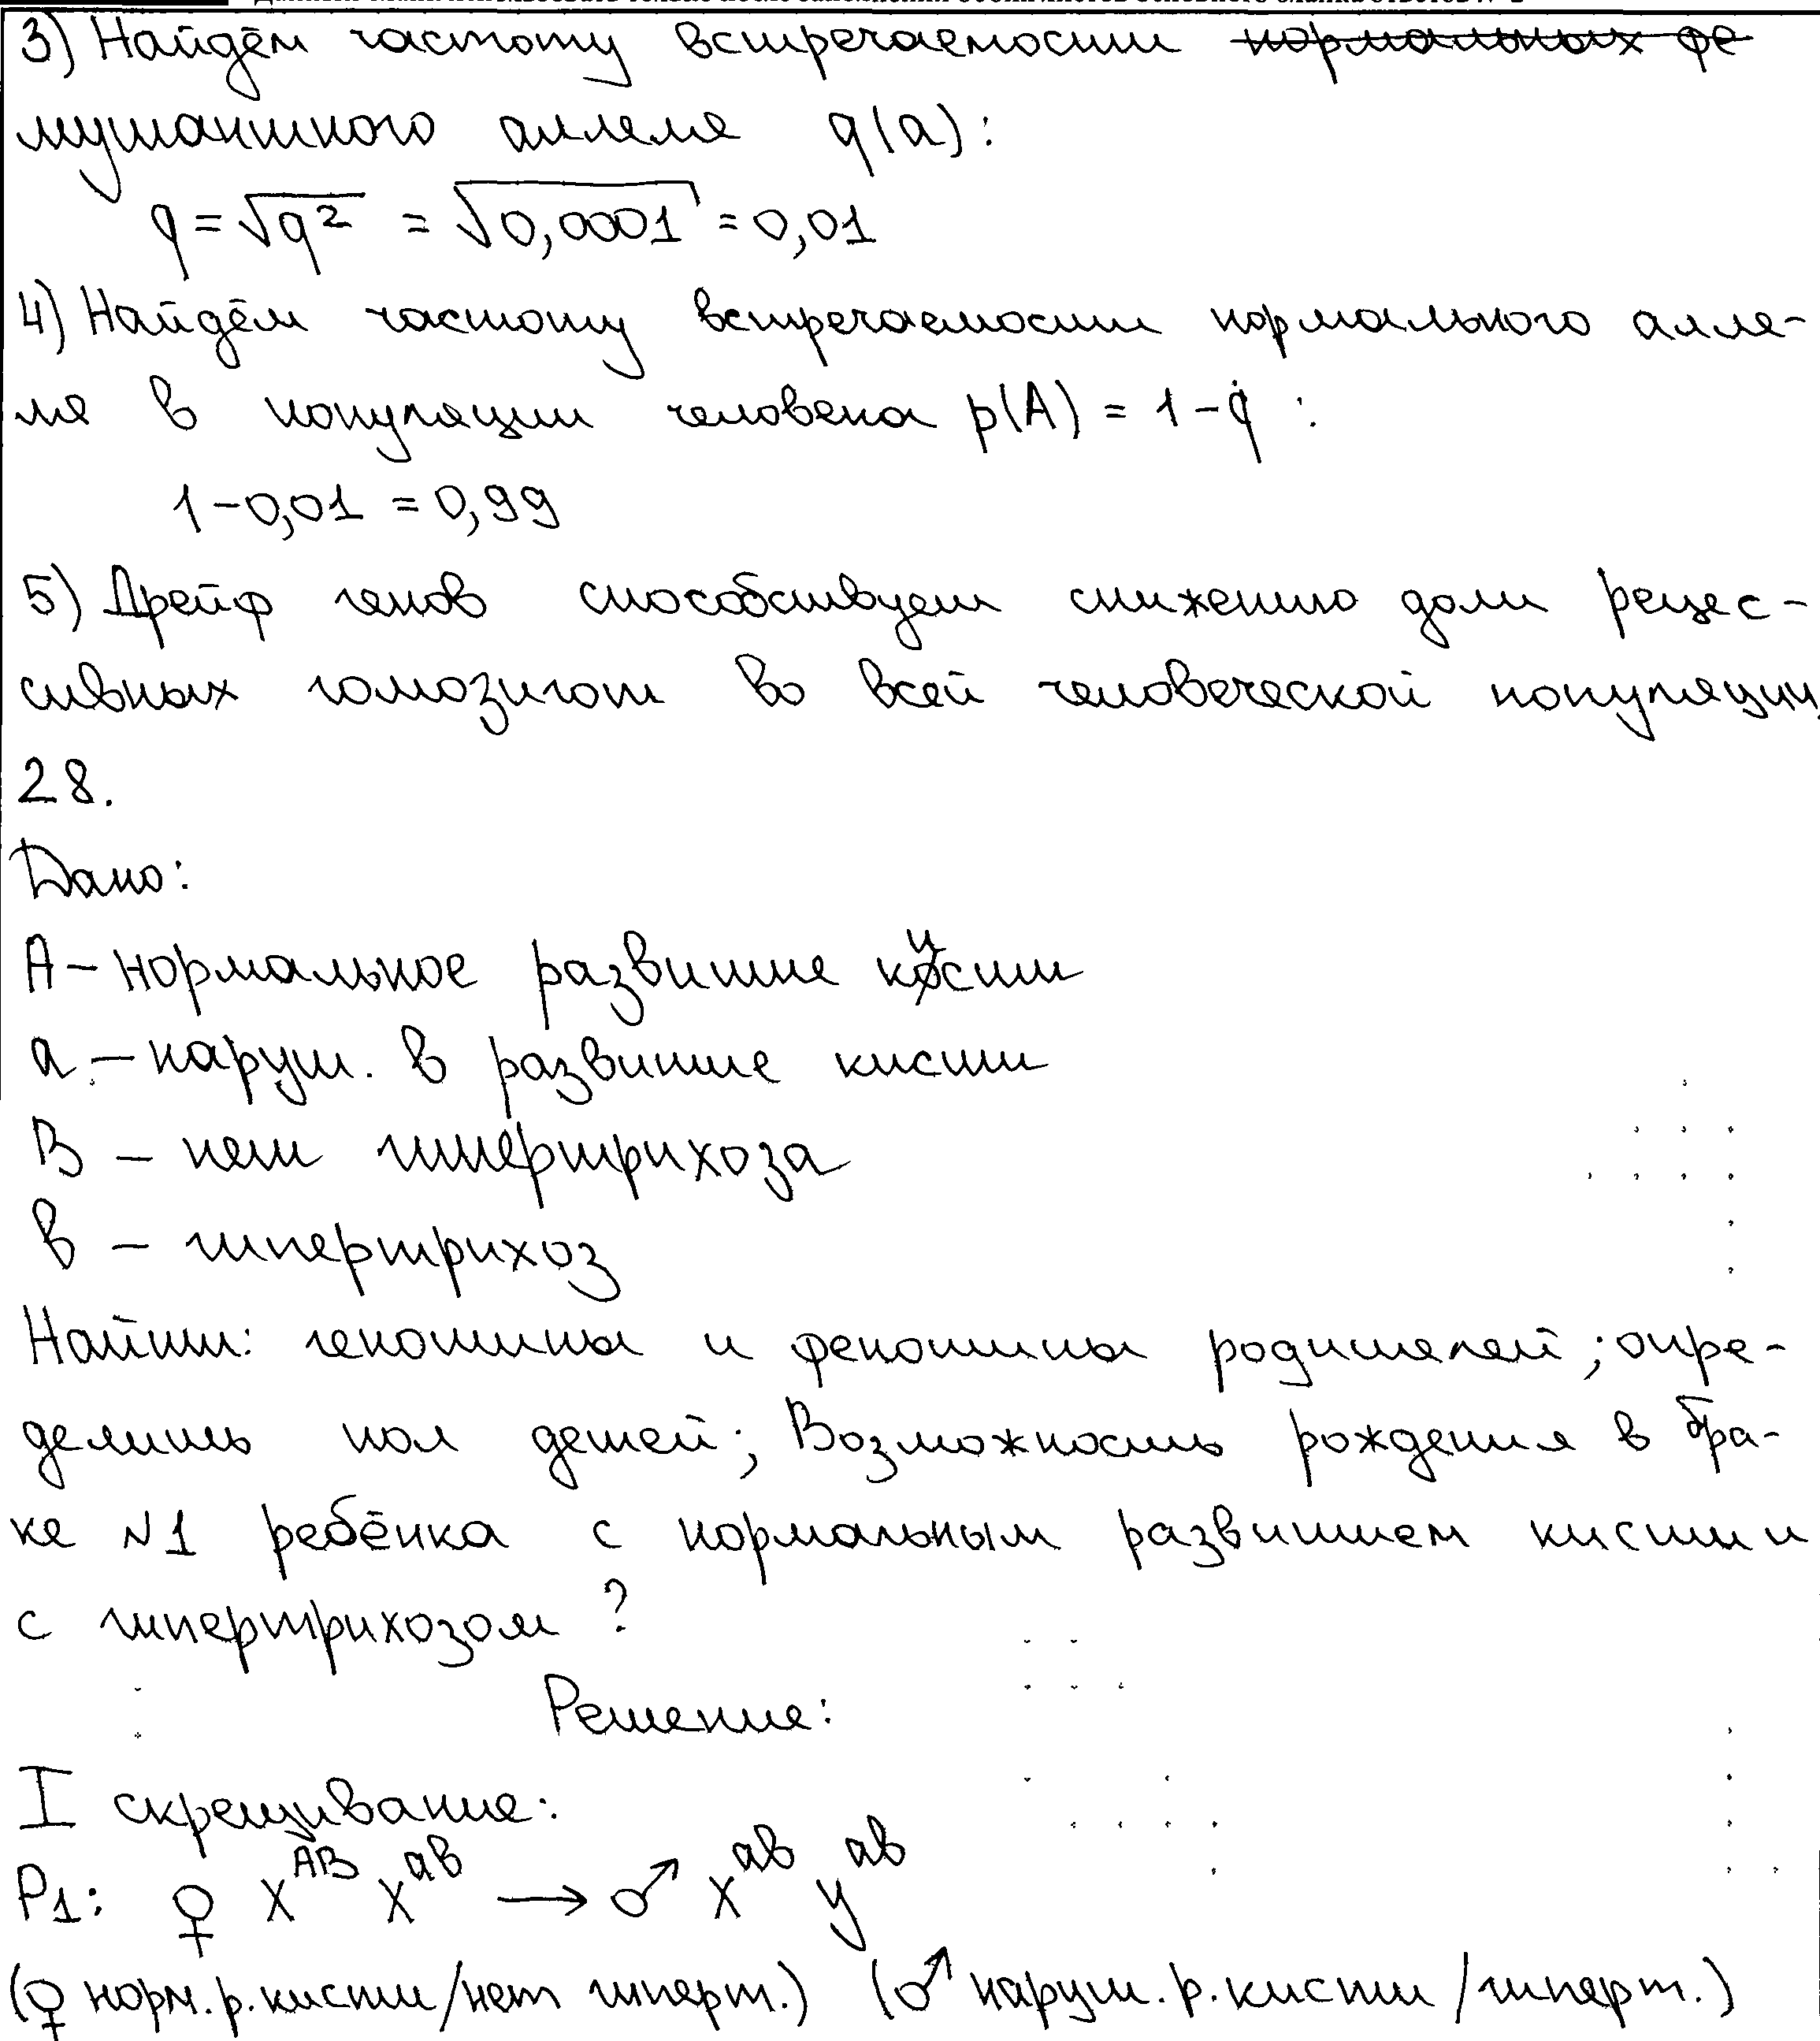 3) Найдём частоту встречаемости нормальных фе
мутантного аллеля q(a):
q = √q² = √0,0001 = 0,01
4) Найдём частоту встречаемости нормального алле-
ля в популяции человека p(A) = 1 - q :
1 - 0,01 = 0,99
5) Дрейф генов способствует снижению доли рецес-
сивных гомозигот во всей человеческой популяции
28.
Дано:
А – нормальное развитие кисти
а – наруш. в развитие кисти
В – нет гипертрихоза
в – гипертрихоз
Найти: генотипы и фенотипы родителей; опре-
делить пол детей; Возможность рождения в бра-
ке №1 ребёнка с нормальным развитием кисти и
с гипертрихозом?
Решение:
I скрещивание:
P1: ♀ X^AB X^ав → ♂ X^ав y^ав
(♀ норм. р. кисти/нет гиперт.) (♂ наруш. р. кисти/гиперт.)